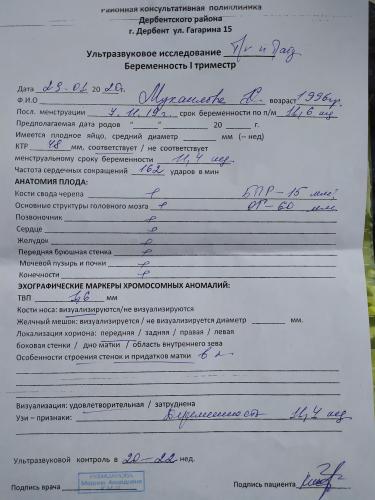 Районная консультативная поликлиника
Дербентского района
г. Дербент ул. Гагарина 15
Ультразвуковое исследование
Беременность I триместр
Дата 29.01 2020г.
Ф.И.О возраст 1996г.
Посл. менструации 7.11.19г. срок беременности по п/м 11,6 нед
Предполагаемая дата родов " " 20 г.
Имеется плодное яйцо, средний диаметр мм (– нед)
КТР 48 мм, соответствует / не соответствует
менструальному сроку беременности 11,4 нед
Частота сердечных сокращений 162 ударов в мин
АНАТОМИЯ ПЛОДА:
Кости свода черепа БПР – 15 мм
Основные структуры головного мозга ОГ – 60 мм
Позвоночник
Сердце
Желудок
Передняя брюшная стенка
Мочевой пузырь и почки
Конечности
ЭХОГРАФИЧЕСКИЕ МАРКЕРЫ ХРОМОСОМНЫХ АНОМАЛИЙ:
ТВП 1,6 мм
Кости носа: визуализируются/не визуализируются
Желчный мешок: визуализируется / не визуализируется диаметр мм
Локализация хориона: передняя / задняя / правая / левая
боковая стенки / дно матки / область внутреннего зева
Особенности строения стенок и придатков матки
Визуализация: удовлетворительная / затруднена
Узи – признаки: Беременность 11,4 нед
Ультразвуковой контроль в 20–22 нед.
Подпись врача Подпись пациента